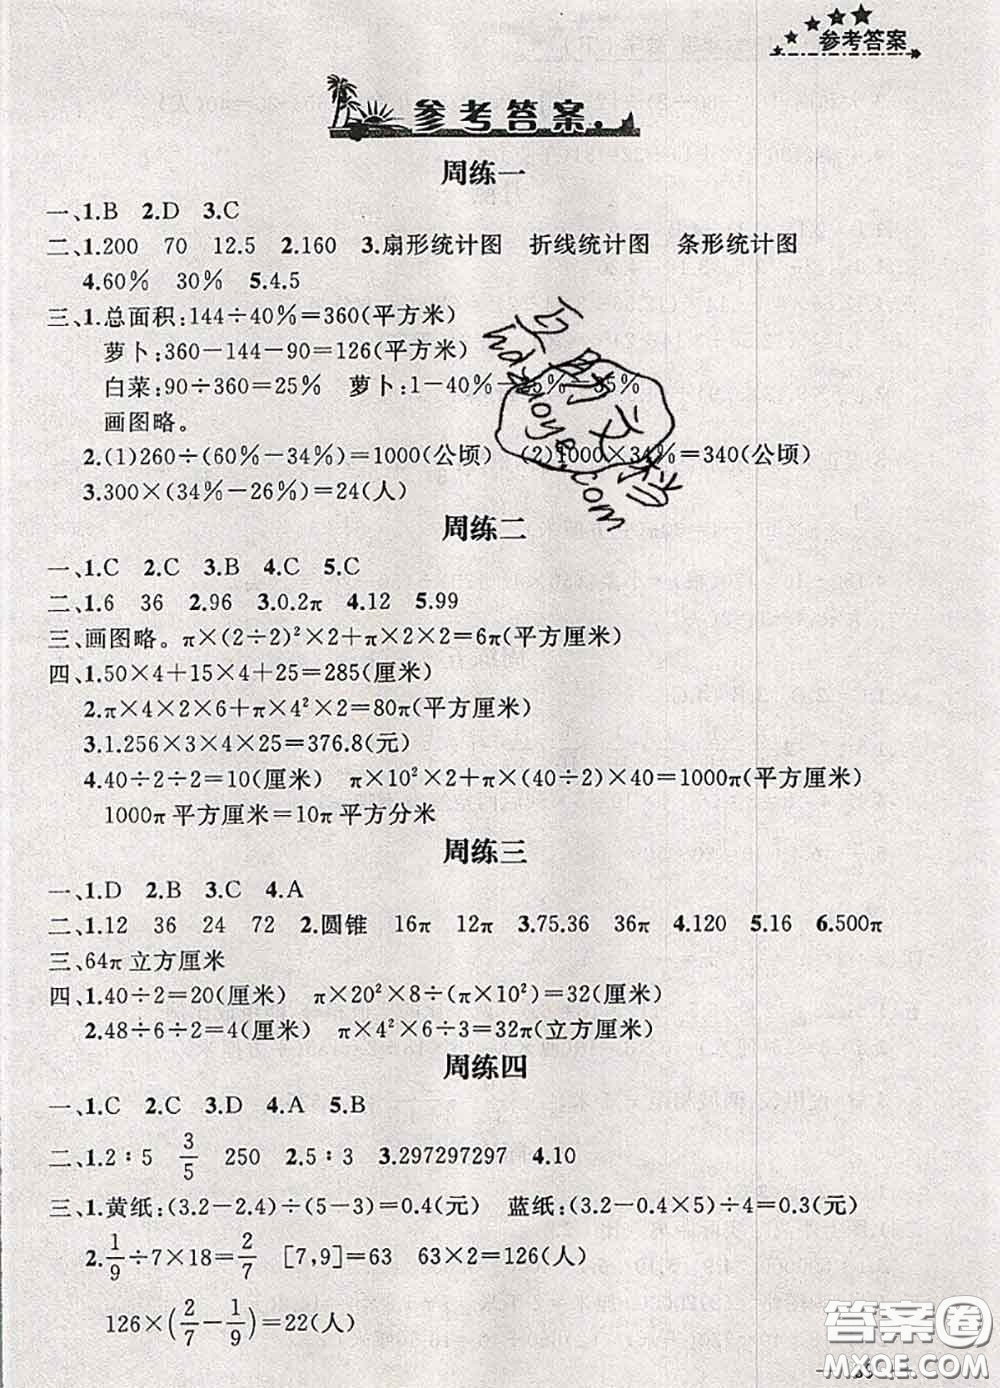 参考答案
参考答案
周练一
一、1.B 2.D 3.C
二、1.200 70 12.5 2.160 3.扇形统计图 折线统计图 条形统计图
4.60% 30% 5.4.5
三、1.总面积:144÷40%=360(平方米)
萝卜:360-144-90=126(平方米)
白菜:90÷360=25% 萝卜:1-40%-25%=35%
画图略。
2.(1)260÷(60%-34%)=1000(公顷) (2)1000×34%=340(公顷)
3.300×(34%-26%)=24(人)
周练二
一、1.C 2.C 3.B 4.C 5.C
二、1.6 36 2.96 3.0.2π 4.12 5.99
三、画图略。π×(2÷2)²×2+π×2×2=6π(平方厘米)
四、1.50×4+15×4+25=285(厘米)
2.π×4×2×6+π×4²×2=80π(平方厘米)
3.1.256×3×4×25=376.8(元)
4.40÷2÷2=10(厘米) π×10²×2+π×(40÷2)×40=1000π(平方厘米)
1000π平方厘米=10π平方分米
周练三
一、1.D 2.B 3.C 4.A
二、1.12 36 24 72 2.圆锥 16π 12π 3.75.36 36π 4.120 5.16 6.500π
三、64π立方厘米
四、1.40÷2=20(厘米) π×20²×8÷(π×10²)=32(厘米)
2.48÷6÷2=4(厘米) π×4²×6÷3=32π(立方厘米)
周练四
一、1.C 2.C 3.D 4.A 5.B
二、1.2∶5 3/5 250 2.5∶3 3.297297297 4.10
三、1.黄纸:(3.2-2.4)÷(5-3)=0.4(元) 蓝纸:(3.2-0.4×5)÷4=0.3(元)
2.1/9÷7×18=2/7 [7,9]=63 63×2=126(人)
126×(2/7-1/9)=22(人)
互助文档
hdzuoye.com
答案圈
MXQE.COM